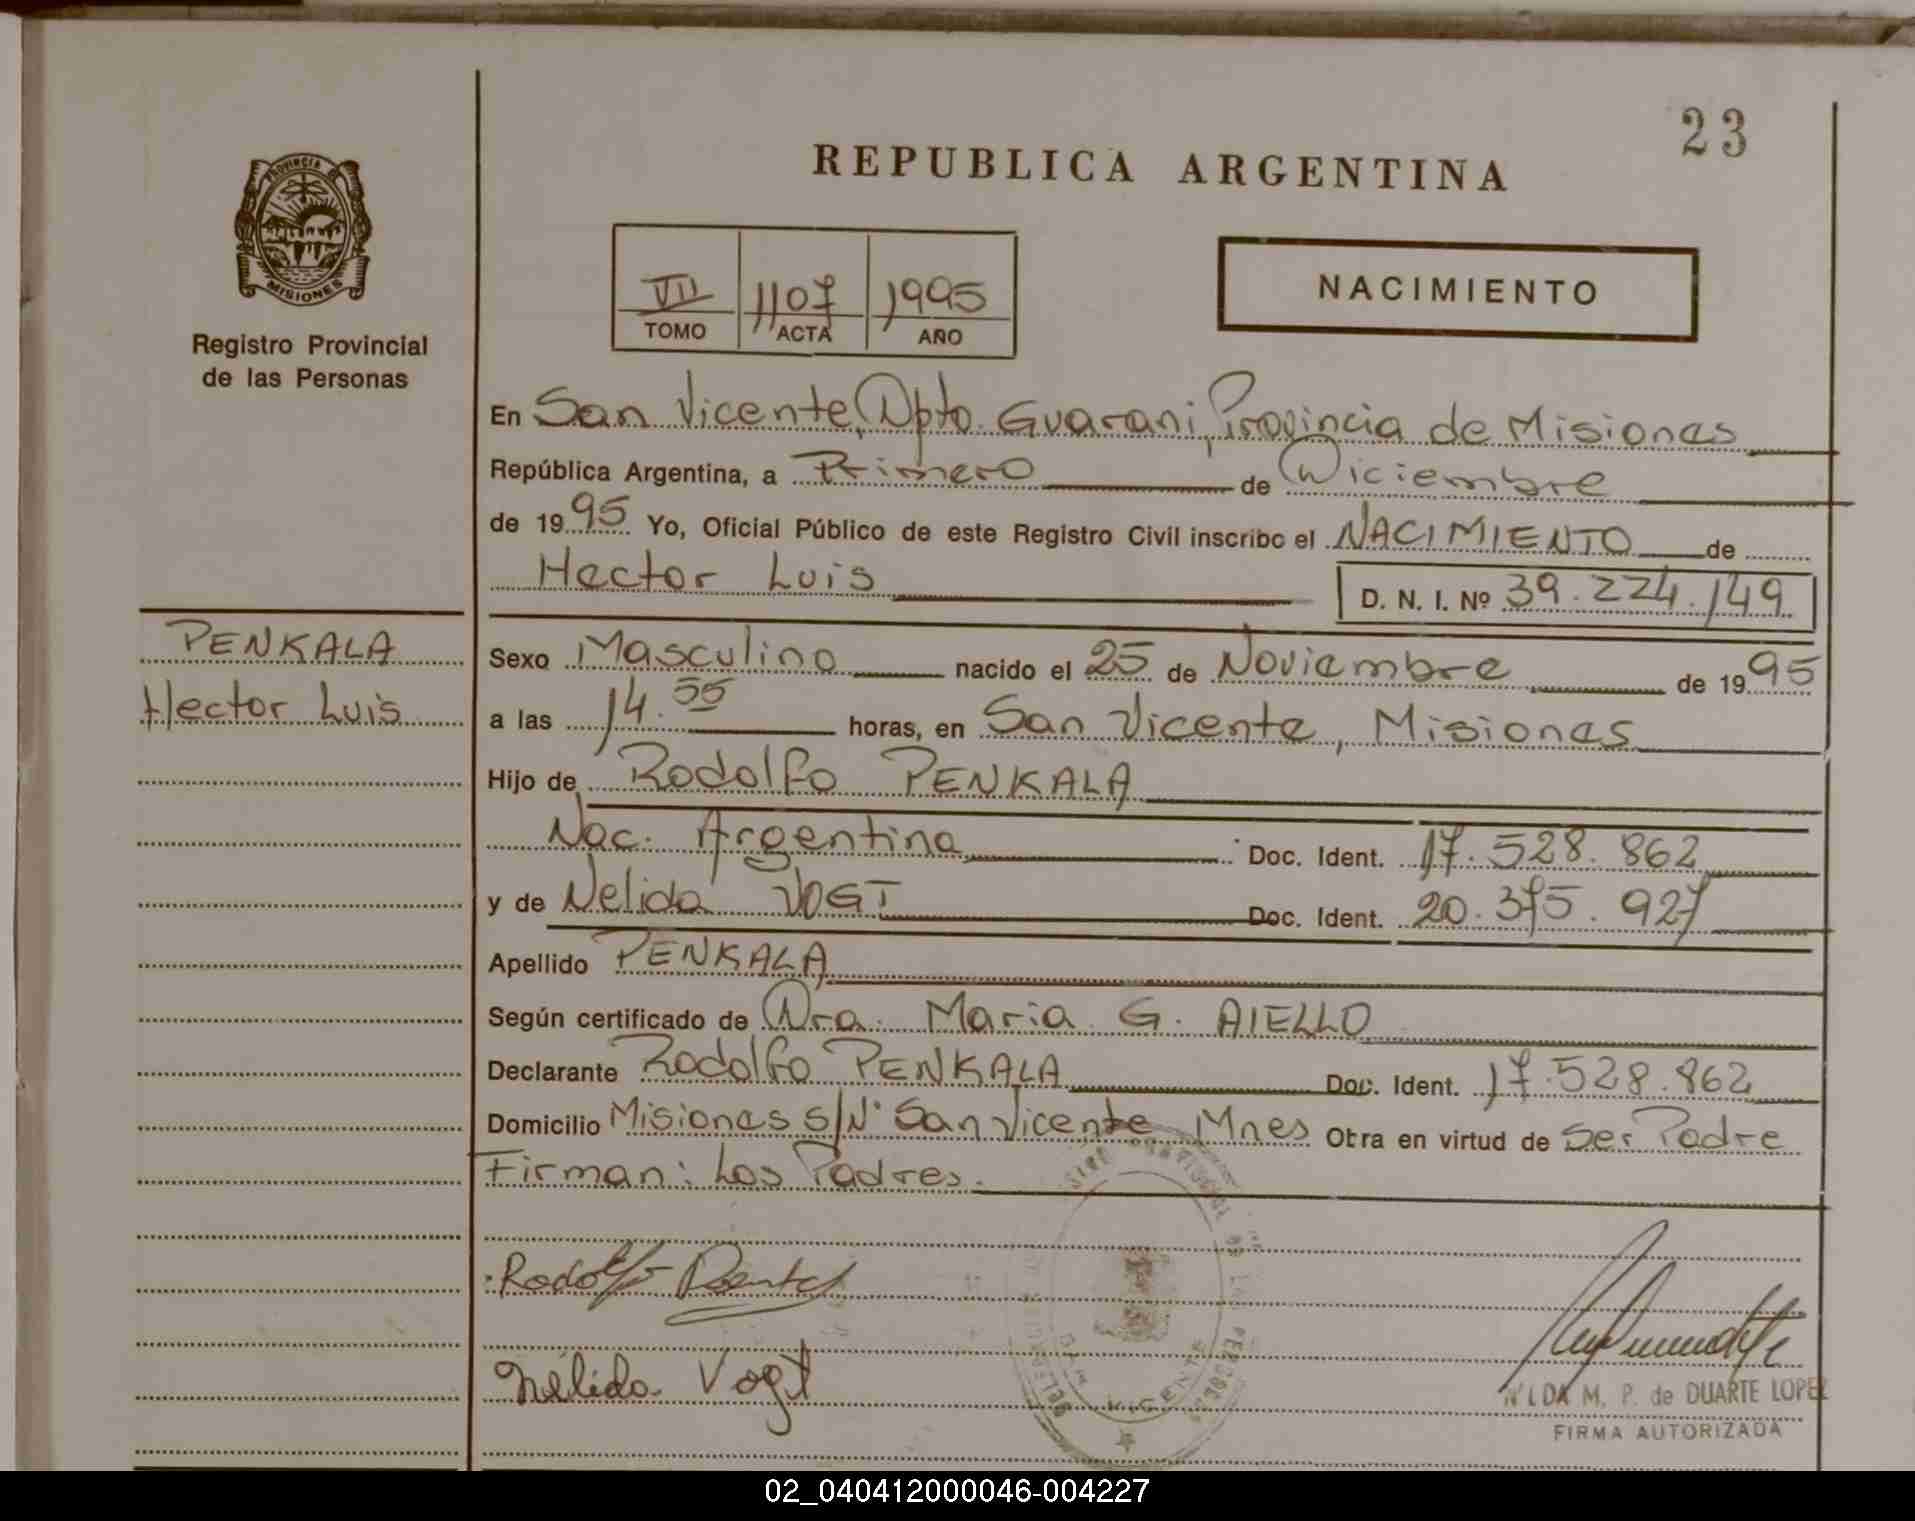 23
REPUBLICA ARGENTINA
PROVINCIA
MISIONES
Registro Provincial
de las Personas
VII 1107 1995
TOMO ACTA AÑO
NACIMIENTO
En San Vicente, Dpto. Guarani, Provincia de Misiones
República Argentina, a Primero de Diciembre
de 1995 Yo, Oficial Público de este Registro Civil inscribo el NACIMIENTO de
Hector Luis D. N. I. Nº 39.224.149
PENKALA
Hector Luis
Sexo Masculino nacido el 25 de Noviembre de 1995
a las 14.55 horas, en San Vicente, Misiones
Hijo de Rodolfo PENKALA
Nac. Argentina Doc. Ident. 17.528.862
y de Nelida VOGT Doc. Ident. 20.375.927
Apellido PENKALA
Según certificado de Dra. Maria G. AIELLO
Declarante Rodolfo PENKALA Doc. Ident. 17.528.862
Domicilio Misiones S/Nº San Vicente Mnes Obra en virtud de Ser Padre
Firman: Los Padres.
Rodolfo
Nélida Vogt
VICENTE
NILDA M. P. de DUARTE LOPEZ
FIRMA AUTORIZADA
02_040412000046-004227